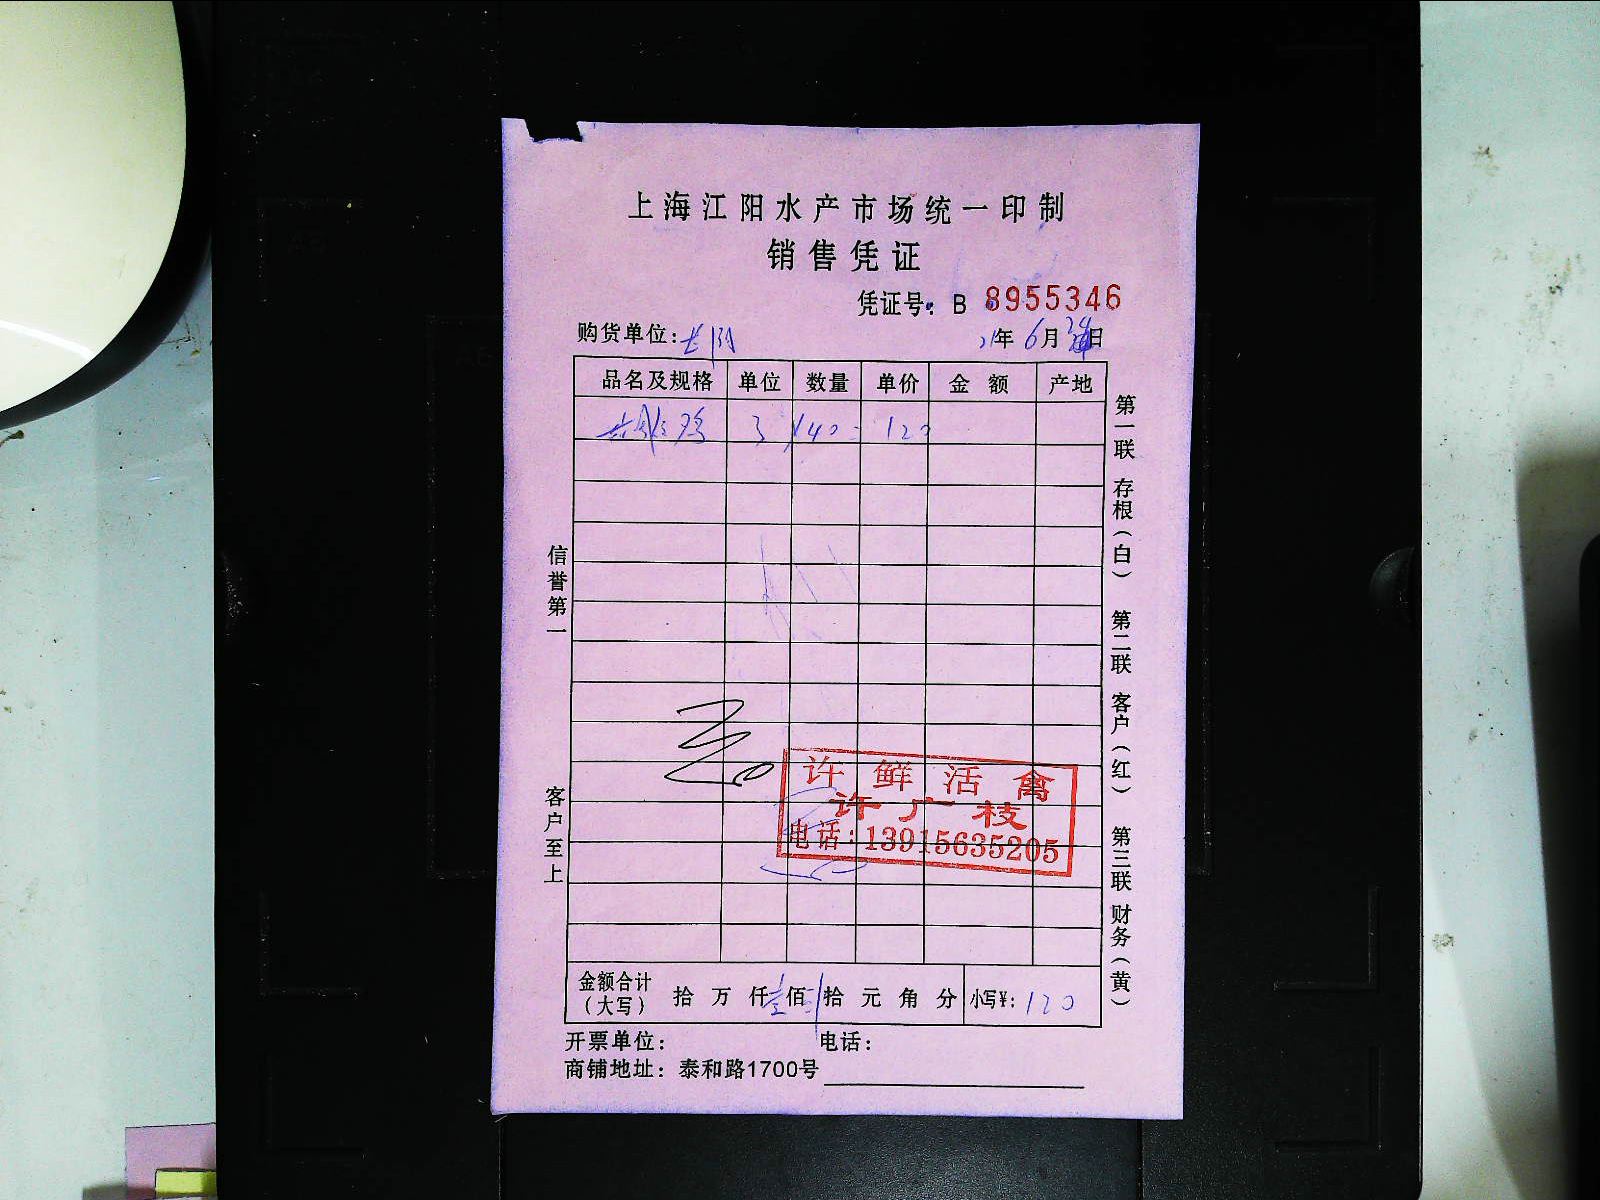 上海江阳水产市场统一印制
销售凭证
凭证号: B 8955346
购货单位:
21年 6月 24日
品名及规格 单位 数量 单价 金额 产地
鸡 3 40 120
信誉第一
客户至上
第一联 存根（白） 第二联 客户（红） 第三联 财务（黄）
许鲜活禽
许广枝
电话:13915635205
金额合计（大写） 拾 万 仟 壹 佰 拾 元 角 分 小写¥: 120
开票单位: 电话:
商铺地址: 泰和路1700号